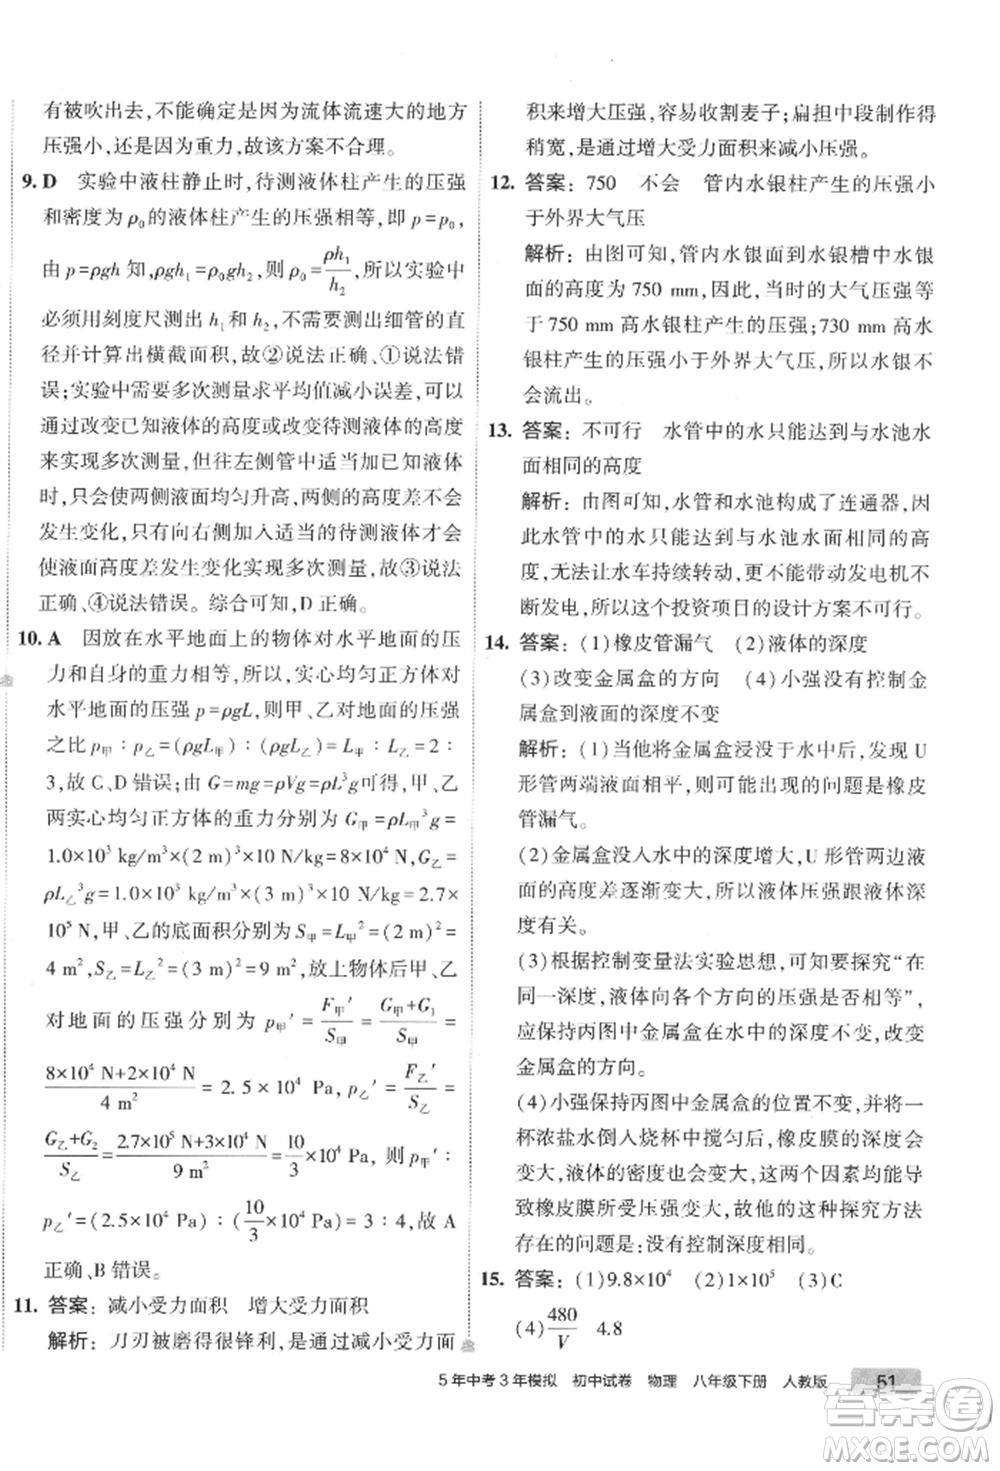 有被吹出去,不能确定是因为流体流速大的地方
压强小,还是因为重力,故该方案不合理。
9. D　实验中液柱静止时,待测液体柱产生的压强
和密度为ρ₀的液体柱产生的压强相等,即 p=p₀,
由 p=ρgh 知,ρgh₁=ρ₀gh₂,则ρ₀=ρh₁/h₂,所以实验中
必须用刻度尺测出 h₁和 h₂,不需要测出细管的直
径并计算出横截面积,故②说法正确、①说法错
误;实验中需要多次测量求平均值减小误差,可以
通过改变已知液体的高度或改变待测液体的高度
来实现多次测量,但往左侧管中适当加入液体时,
只会使两侧液面均匀升高,两侧的高度差不会
发生变化,只有向右侧加入适当的待测液体时,才
能使液面高度差发生变化实现多次测量,故③说法
正确、④说法错误。综合可知,D 正确。
10. A　因放在水平地面上的物体对水平地面的压
力和自身的重力相等,所以,实心均匀正方体对
水平地面的压强 p=ρgL,则甲、乙对地面的压强
之比 p甲∶p乙=(ρgL甲)∶(ρgL乙)=L甲∶L乙=2∶
3,故 C、D 错误;由 G=mg=ρVg=ρL³g可得,甲、乙
两实心均匀正方体的重力分别为 G甲=ρL甲³g=
1.0×10³ kg/m³×(2 m)³×10 N/kg=8×10⁴ N,G乙=
ρL乙³g=1.0×10³ kg/m³×(3 m)³×10 N/kg=2.7×
10⁵ N,甲、乙的底面积分别为 S甲=L甲²=(2 m)²=
4 m²,S乙=L乙²=(3 m)²=9 m²,放上物体后甲、乙
对地面的压强分别为 p甲′=F甲′/S甲=(G甲+G₁)/S甲=
(8×10⁴ N+2×10⁴ N)/4 m²=2.5×10⁴ Pa,p乙′=F乙′/S乙=
(G乙+G₂)/S乙=(2.7×10⁵ N+3×10⁴ N)/9 m²=10/3×10⁴ Pa,则 p甲′∶
p乙′=(2.5×10⁴ Pa)∶(10/3×10⁴ Pa)=3∶4,故 A
正确、B 错误。
11. 答案:减小受力面积　增大受力面积
解析:刀刃被磨得很锋利,是通过减小受力面
积来增大压强,容易收割麦子;扁担中段制作得
稍宽,是通过增大受力面积来减小压强。
12. 答案:750　不会　管内水银柱产生的压强小
于外界大气压
解析:由图可知,管内水银面到水银槽中水银
面的高度为 750 mm,因此,当时的大气压强等
于 750 mm 高水银柱产生的压强;730 mm 高水
银柱产生的压强小于外界大气压,所以水银不
会流出。
13. 答案:不可行　水管中的水只能达到与水池水
面相同的高度
解析:由图可知,水管和水池构成了连通器,因
此水管中的水只能达到与水池水面相同的高
度,无法让水车持续转动,更不能带动发电机不
断发电,所以这个投资项目的设计方案不可行。
14. 答案:(1)橡皮管漏气　(2)液体的深度
(3)改变金属盒的方向　(4)小强没有控制金
属盒到液面的深度不变
解析:(1)当他将金属盒浸没于水中后,发现 U
形管两端液面相平,则可能出现的问题是橡皮
管漏气。
(2)金属盒没入水中的深度增大,U 形管两边液
面的高度差逐渐变大,所以液体压强跟液体深
度有关。
(3)根据控制变量法实验思想,可知要探究“在
同一深度,液体向各个方向的压强是否相等”,
应保持丙图中金属盒在水中的深度不变,改变
金属盒的方向。
(4)小强保持丙图中金属盒的位置不变,并将一
杯浓盐水倒入烧杯中搅匀后,橡皮膜的深度会
变大,液体的密度也会变大,这两个因素均能导
致橡皮膜所受压强变大,故他的这种探究方法
存在的问题是:没有控制深度相同。
15. 答案:(1)9.8×10⁴　(2)1×10⁵　(3)C
(4)480/V　4.8
5 年中考 3 年模拟　初中试卷　物理　八年级下册　人教版　51
答案圈
MXQE.COM